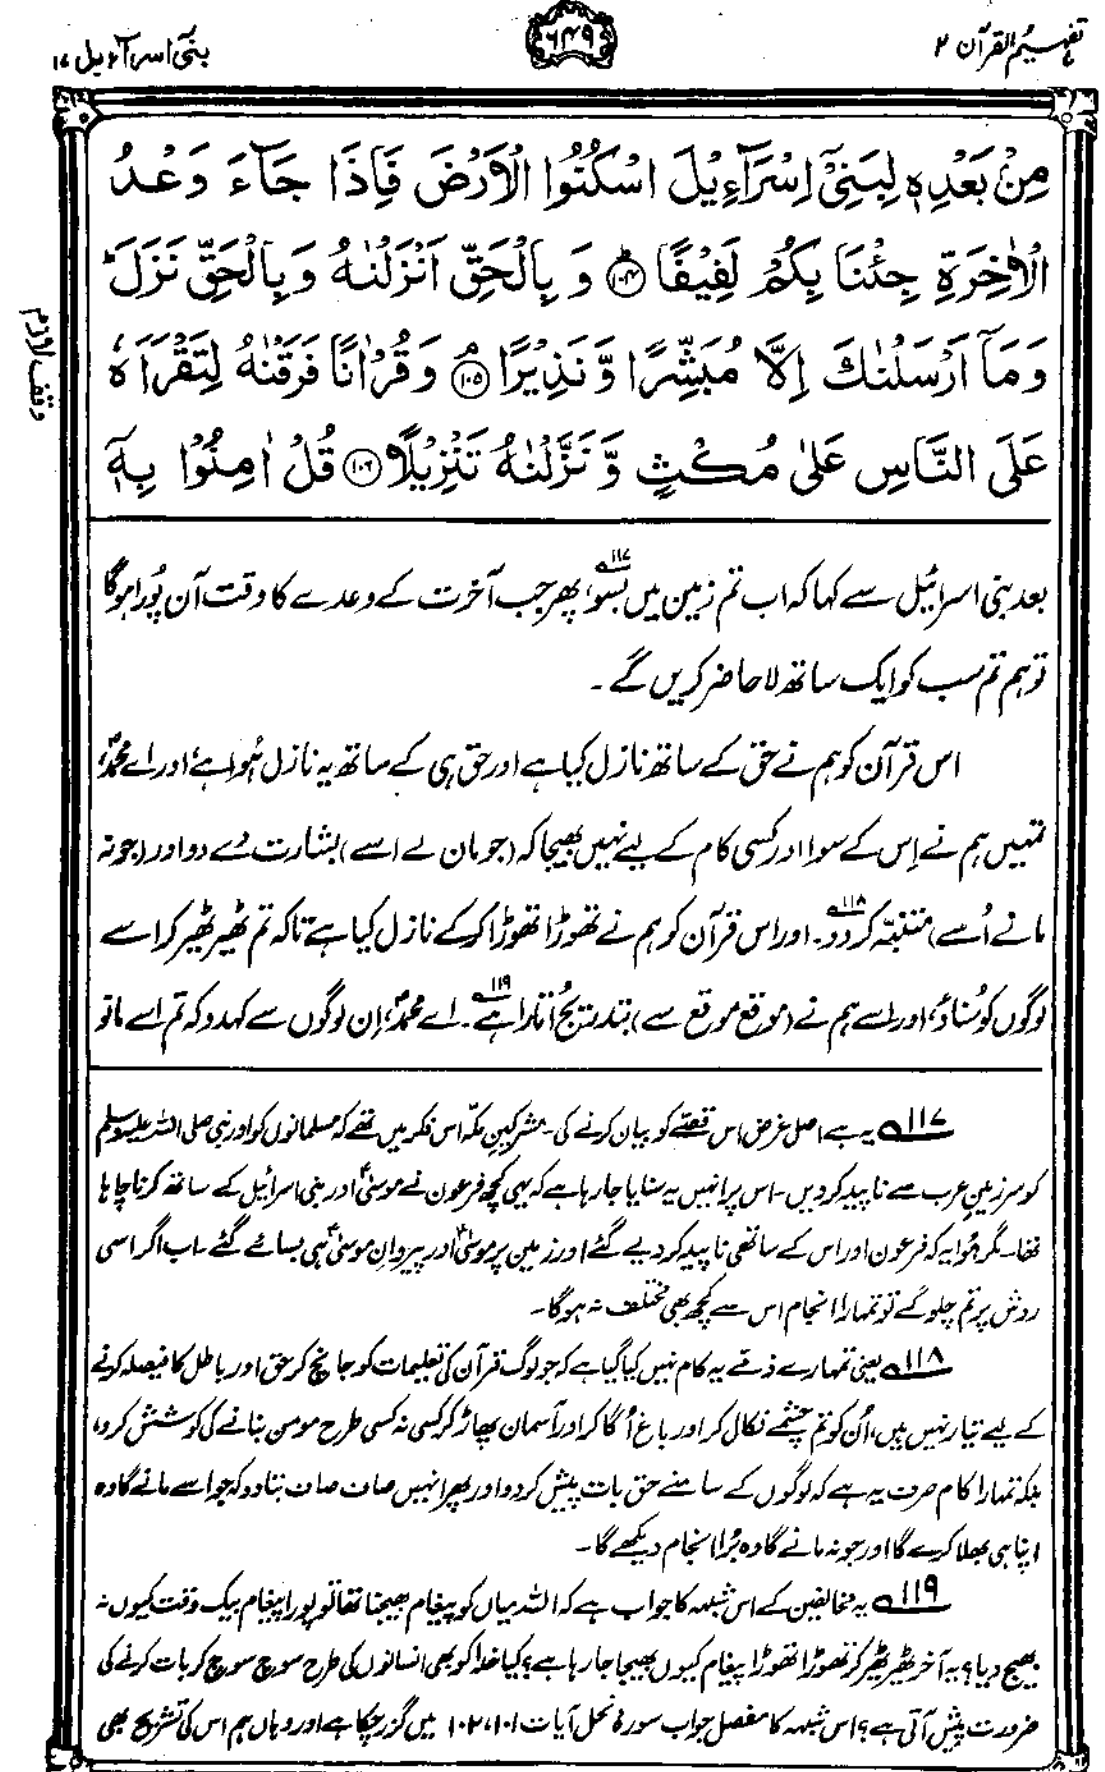 تفہیم القرآن ۲
۶۴۹
بنی اسرآءیل ۱۷
مِنْۢ بَعْدِهٖ لِبَنِیْۤ اِسْرَآءِیْلَ اسْكُنُوا الْاَرْضَ فَاِذَا جَآءَ وَعْدُ
الْاٰخِرَةِ جِئْنَا بِكُمْ لَفِیْفًاؕ ۝۱۰۴ وَ بِالْحَقِّ اَنْزَلْنٰهُ وَ بِالْحَقِّ نَزَلَؕ
وَ مَاۤ اَرْسَلْنٰكَ اِلَّا مُبَشِّرًا وَّ نَذِیْرًاۘ ۝۱۰۵ وَ قُرْاٰنًا فَرَقْنٰهُ لِتَقْرَاَهٗ
عَلَی النَّاسِ عَلٰی مُكْثٍ وَّ نَزَّلْنٰهُ تَنْزِیْلًا ۝۱۰۶ قُلْ اٰمِنُوْا بِهٖۤ
وقف لازم
بعد بنی اسرائیل سے کہا کہ اب تم زمین میں بسو۱۱۷، پھر جب آخرت کے وعدے کا وقت آن پُورا ہوگا
تو ہم تم سب کو ایک ساتھ لا حاضر کریں گے۔
اس قرآن کو ہم نے حق کے ساتھ نازل کیا ہے اور حق ہی کے ساتھ یہ نازل ہُوا ہے، اور اے محمدؐ،
تمہیں ہم نے اِس کے سوا اور کسی کام کے لیے نہیں بھیجا کہ (جو مان لے اسے) بشارت دے دو اور (جو نہ
مانے اُسے) متنبّہ کر دو۱۱۸۔ اور اس قرآن کو ہم نے تھوڑا تھوڑا کرکے نازل کیا ہے تاکہ تم ٹھیر ٹھیر کر اسے
لوگوں کو سُناؤ، اور اسے ہم نے (موقع موقع سے) بتدریج اُتارا ہے۱۱۹۔ اے محمدؐ، اِن لوگوں سے کہدو کہ تم اسے مانو
۱۱۷ یہ ہے اصل غرض اس قصّے کو بیان کرنے کی۔ مشرکینِ مکّہ اس فکر میں تھے کہ مسلمانوں کو اور نبی صلی اللہ علیہ وسلم
کو سرزمینِ عرب سے ناپید کر دیں۔ اس پر انہیں یہ سنایا جا رہا ہے کہ یہی کچھ فرعون نے موسیٰؑ اور بنی اسرائیل کے ساتھ کرنا چاہا
تھا۔ مگر ہُوا یہ کہ فرعون اور اس کے ساتھی ناپید کر دیے گئے اور زمین پر موسیٰؑ اور پیروانِ موسیٰؑ ہی بسائے گئے۔ اب اگر اسی
روش پر تم چلو گے تو تمہارا انجام اس سے کچھ بھی مختلف نہ ہوگا۔
۱۱۸ یعنی تمہارے ذمّے یہ کام نہیں کیا گیا ہے کہ جو لوگ قرآن کی تعلیمات کو جانچ کر حق اور باطل کا فیصلہ کرنے
کے لیے تیار نہیں ہیں، اُن کو تم چشمے نکال کر اور باغ اُگا کر اور آسمان پھاڑ کر کسی نہ کسی طرح مومن بنانے کی کوشش کرو،
بلکہ تمہارا کام صرف یہ ہے کہ لوگوں کے سامنے حق بات پیش کر دو اور پھر انہیں صاف صاف بتا دو کہ جو اسے مانے گا وہ
اپنا ہی بھلا کرے گا اور جو نہ مانے گا وہ بُرا انجام دیکھے گا۔
۱۱۹ یہ مخالفین کے اس شبہہ کا جواب ہے کہ اللہ میاں کو پیغام بھیجنا تھا تو پورا پیغام بیک وقت کیوں نہ
بھیج دیا؟ یہ آخر ٹھیر ٹھیر کر تھوڑا تھوڑا پیغام کیوں بھیجا جا رہا ہے؟ کیا خدا کو بھی انسانوں کی طرح سوچ سوچ کر بات کرنے کی
ضرورت پیش آتی ہے؟ اس شبہہ کا مفصل جواب سورۂ نحل آیات ۱۰۱، ۱۰۲ میں گزر چکا ہے اور وہاں ہم اس کی تشریح بھی